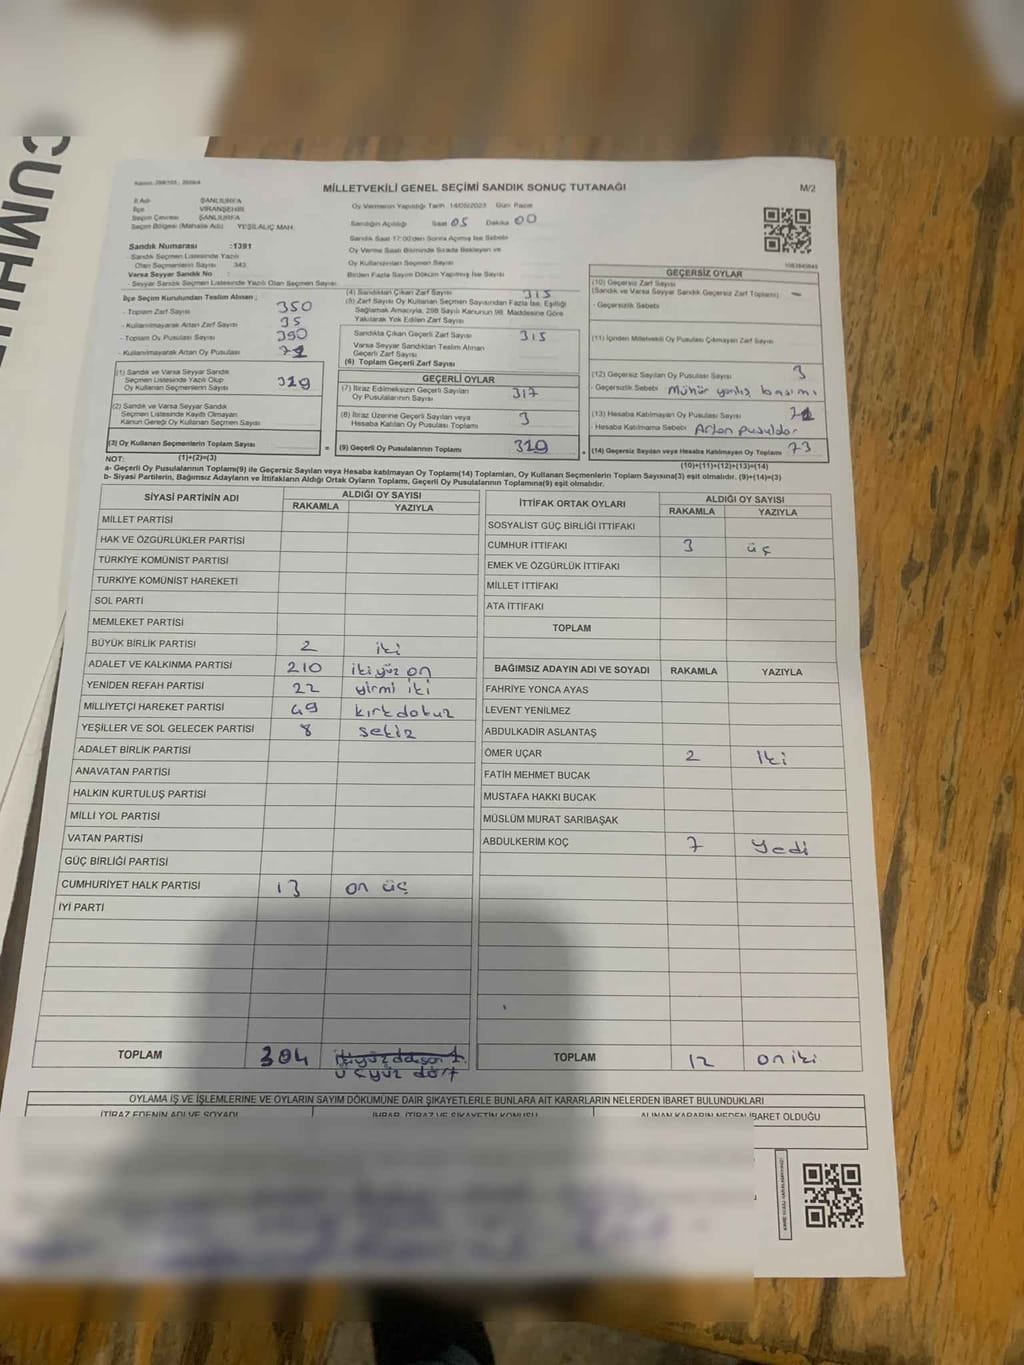 CUMHU
MİLLETVEKİLİ GENEL SEÇİMİ SANDIK SONUÇ TUTANAĞI
M/2
İl Adı ŞANLIURFA
İlçe VİRANŞEHİR
Seçim Çevresi ŞANLIURFA
Seçim Bölgesi (Mahalle Adı) YEŞİLALIÇ MAH.
Oy Vermenin Yapıldığı Tarih 14/05/2023 Gün Pazar
Sandığın Açıldığı Saat 05 Dakika 00
Sandık Saat 17:00'den Sonra Açılmış İse Sebebi
Oy Verme Saati Bitiminde Sırada Bekleyen ve
Oy Kullandırılan Seçmen Sayısı
Birden Fazla Sayım Döküm Yapılmış İse Sayısı
Sandık Numarası :1391
- Sandık Seçmen Listesinde Yazılı
Olan Seçmenlerin Sayısı 343
Varsa Seyyar Sandık No :
- Seyyar Sandık Seçmen Listesinde Yazılı Olan Seçmen Sayısı
İlçe Seçim Kurulundan Teslim Alınan ;
- Toplam Zarf Sayısı 350
- Kullanılmayarak Artan Zarf Sayısı 35
- Toplam Oy Pusulası Sayısı 390
- Kullanılmayarak Artan Oy Pusulası
(1) Sandık ve Varsa Seyyar Sandık
Seçmen Listesinde Yazılı Olup
Oy Kullanan Seçmenlerin Sayısı 319
(2) Sandık ve Varsa Seyyar Sandık
Seçmen Listesinde Kayıtlı Olmayan
Kanun Gereği Oy Kullanan Seçmen Sayısı
(3) Oy Kullanan Seçmenlerin Toplam Sayısı
(1)+(2)=(3)
(4) Sandıktan Çıkan Zarf Sayısı 315
(5) Zarf Sayısı Oy Kullanan Seçmen Sayısından Fazla İse, Eşitliği
Sağlamak Amacıyla, 298 Sayılı Kanunun 98. Maddesine Göre
Yakılarak Yok Edilen Zarf Sayısı
Sandıkta Çıkan Geçerli Zarf Sayısı 315
Varsa Seyyar Sandıktan Teslim Alınan
Geçerli Zarf Sayısı
(6) Toplam Geçerli Zarf Sayısı
GEÇERLİ OYLAR
(7) İtiraz Edilmeksizin Geçerli Sayılan
Oy Pusulalarının Sayısı 317
(8) İtiraz Üzerine Geçerli Sayılan veya
Hesaba Katılan Oy Pusulası Toplamı 3
= (9) Geçerli Oy Pusulalarının Toplamı 319
GEÇERSİZ OYLAR
(10) Geçersiz Zarf Sayısı
(Sandık ve Varsa Seyyar Sandık Geçersiz Zarf Toplamı) -
- Geçersizlik Sebebi
(11) İçinden Milletvekili Oy Pusulası Çıkmayan Zarf Sayısı
(12) Geçersiz Sayılan Oy Pusulası Sayısı 3
- Geçersizlik Sebebi Mühür yanlış basımı
(13) Hesaba Katılmayan Oy Pusulası Sayısı
- Hesaba Katılmama Sebebi Artan pusulalar
+ (14) Geçersiz Sayılan veya Hesaba Katılmayan Oy Toplamı 73
(10)+(11)+(12)+(13)=(14)
NOT:
a- Geçerli Oy Pusulalarının Toplamı(9) ile Geçersiz Sayılan veya Hesaba katılmayan Oy Toplamı(14) Toplamları, Oy Kullanan Seçmenlerin Toplam Sayısına(3) eşit olmalıdır. (9)+(14)=(3)
b- Siyasi Partilerin, Bağımsız Adayların ve İttifakların Aldığı Ortak Oyların Toplamı, Geçerli Oy Pusulalarının Toplamına(9) eşit olmalıdır.
SİYASİ PARTİNİN ADI ALDIĞI OY SAYISI
RAKAMLA YAZIYLA
MİLLET PARTİSİ
HAK VE ÖZGÜRLÜKLER PARTİSİ
TÜRKİYE KOMÜNİST PARTİSİ
TÜRKİYE KOMÜNİST HAREKETİ
SOL PARTİ
MEMLEKET PARTİSİ
BÜYÜK BİRLİK PARTİSİ 2 iki
ADALET VE KALKINMA PARTİSİ 210 ikiyüz on
YENİDEN REFAH PARTİSİ 22 yirmi iki
MİLLİYETÇİ HAREKET PARTİSİ 49 kırkdokuz
YEŞİLLER VE SOL GELECEK PARTİSİ 8 sekiz
ADALET BİRLİK PARTİSİ
ANAVATAN PARTİSİ
HALKIN KURTULUŞ PARTİSİ
MİLLİ YOL PARTİSİ
VATAN PARTİSİ
GÜÇ BİRLİĞİ PARTİSİ
CUMHURİYET HALK PARTİSİ 13 on üç
İYİ PARTİ
TOPLAM 304
üçyüz dört
İTTİFAK ORTAK OYLARI ALDIĞI OY SAYISI
RAKAMLA YAZIYLA
SOSYALİST GÜÇ BİRLİĞİ İTTİFAKI
CUMHUR İTTİFAKI 3 üç
EMEK VE ÖZGÜRLÜK İTTİFAKI
MİLLET İTTİFAKI
ATA İTTİFAKI
TOPLAM
BAĞIMSIZ ADAYIN ADI VE SOYADI RAKAMLA YAZIYLA
FAHRİYE YONCA AYAS
LEVENT YENİLMEZ
ABDULKADİR ASLANTAŞ
ÖMER UÇAR 2 iki
FATİH MEHMET BUCAK
MUSTAFA HAKKI BUCAK
MÜSLÜM MURAT SARIBAŞAK
ABDULKERİM KOÇ 7 yedi
TOPLAM 12 oniki
OYLAMA İŞ VE İŞLEMLERİNE VE OYLARIN SAYIM DÖKÜMÜNE DAİR ŞİKAYETLERLE BUNLARA AİT KARARLARIN NELERDEN İBARET BULUNDUKLARI
İTİRAZ EDENİN ADI VE SOYADI İHBAR, İTİRAZ VE ŞİKAYETİN KONUSU ALINAN KARARIN NEDEN İBARET OLDUĞU